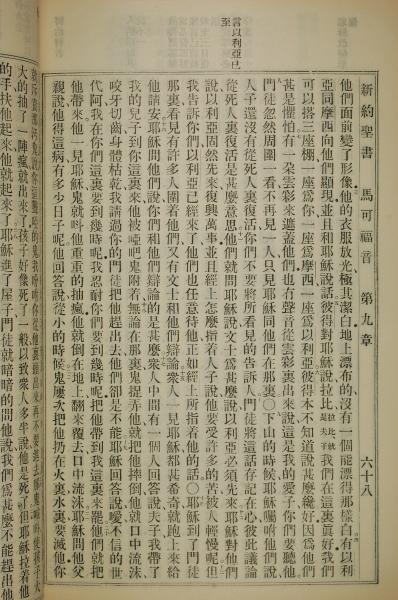 新約聖書 馬可福音 第九章 六十八
他們面前變了形像他的衣服放光極其潔白地上漂布的沒有一個能漂得那樣白有以利
亞同摩西向他們顯現並且和耶穌說話彼得對耶穌說拉比拉比就是夫子我們在這裏眞好我們
可以搭三座棚一座爲你一座爲摩西一座爲以利亞彼得本不知道說甚麼纔好因爲他們
甚是懼怕有一朶雲彩來遮蓋他們也有聲音從雲彩裏出來說這是我的愛子你們要聽他
門徒忽然周圍一看不再見一人只見耶穌同他們在那裏○下山的時候耶穌囑咐他們說
人子還沒有從死人裏復活你們不要將所看見的吿訴人門徒將這話存記在心彼此議論
從死人裏復活是甚麼意思他們就問耶穌說文士爲甚麼說以利亞必須先來耶穌對他們
說以利亞固然先來復興萬事並且經上怎麼指着人子說他要受許多的苦被人輕慢呢但
我吿訴你們以利亞已經來了他們也任意待他正如經上所指着他的話○耶穌到了門徒
那裏看見有許多人圍着他們又有文士和他們辯論衆人一見耶穌都甚希奇就跑上來給
他請安耶穌問他們說你們和他們辯論的是甚麼衆人中間有一個人回答說夫子我帶了
我的兒子到你這裏來他被啞吧鬼附着無論在那裏鬼捉弄他就把他摔倒他就口中流沫
咬牙切齒身體枯乾我請過你的門徒把他趕出去他們卻是不能耶穌回答說噯不信的世
代阿我在你們這裏要到幾時呢我忍耐你們要到幾時呢把他帶到我這裏來罷他們就把
他帶來他一見耶穌鬼就呌他重重的抽瘋他就倒在地上翻來覆去口中流沫耶穌問他父
親說他得這病有多少日子呢他回答說從小的時候鬼屢次把他扔在火裏水裏要滅他你
言以利亞已
至
大的抽了一陣瘋就出來了孩子好像死了一般以致衆人多半說他是死了但耶穌拉着他
的手扶他起來他就起來了耶穌進了屋子門徒就暗暗的問他說我們爲甚麼不能趕出他